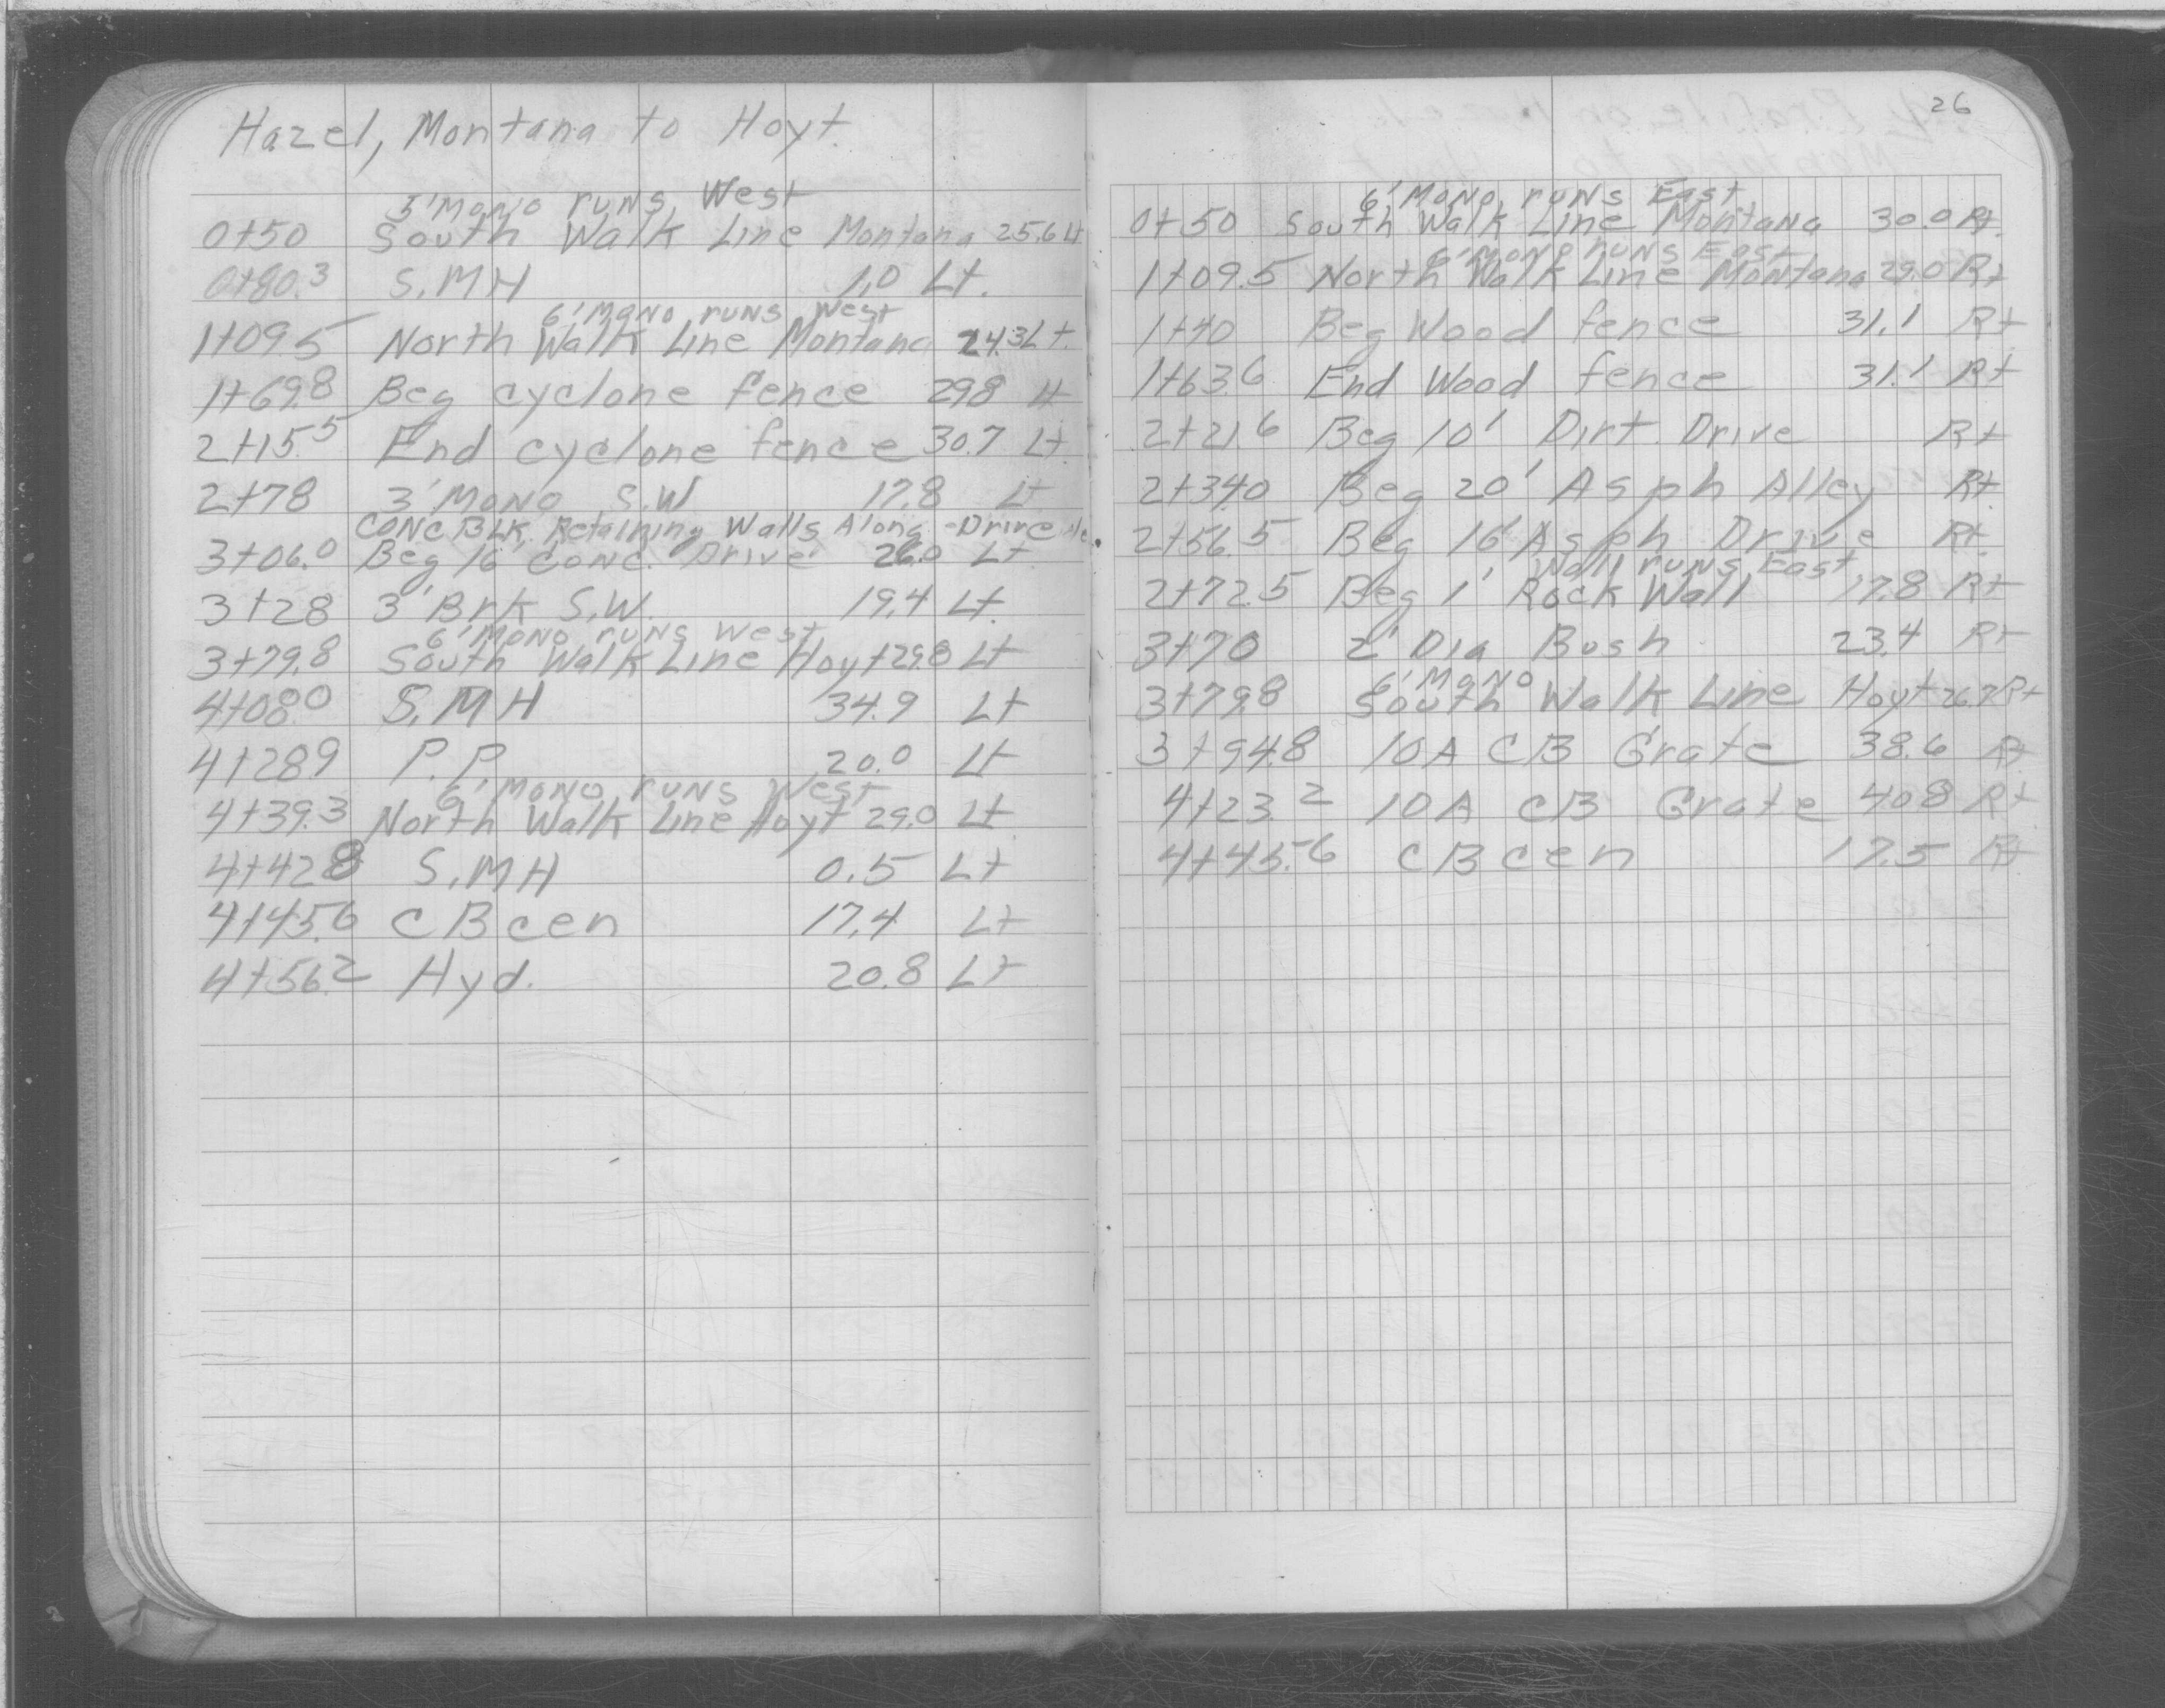 Hazel, Montana to Hoyt.
5' MONO runs West
0+50 South Walk Line Montana 25.6 Lt
0+80.3 S.MH 1.0 Lt.
6' MONO runs West
1+09.5 North Walk Line Montana 24.3 Lt.
1+69.8 Beg cyclone fence 29.8 Lt
2+15.5 End cyclone fence 30.7 Lt.
2+78 3' MONO S.W 17.8 Lt
CONC BLK. Retaining Walls Along Drive
3+06.0 Beg 16' CONC. Drive 26.0 Lt
3+28 3' Brk S.W. 19.4 Lt.
6' MONO runs West
3+79.8 South Walk Line Hoyt 29.8 Lt
4+08.0 S.MH 34.9 Lt
4+28.9 P.P. 20.0 Lt
6' MONO runs West
4+39.3 North Walk Line Hoyt 29.0 Lt
4+42.8 S.MH 0.5 Lt
4+45.6 CB cen 17.4 Lt
4+56.2 Hyd. 20.8 Lt
26
6' MONO runs East
0+50 South Walk Line Montana 30.0 Rt.
6' MONO runs East
1+09.5 North Walk Line Montana 29.0 Rt
1+40 Beg Wood fence 31.1 Rt
1+63.6 End Wood fence 31.1 Rt
2+21.6 Beg 10' Dirt Drive Rt
2+34.0 Beg 20' Asph Alley Rt
2+56.5 Beg 16' Asph Drive Rt
Wall runs East
2+72.5 Beg 1' Rock Wall 17.8 Rt
3+70 2' Dia Bush 23.4 Rt
6' MONO
3+79.8 South Walk Line Hoyt 26.7 Rt
3+94.8 10A CB Grate 38.6 Rt
4+23.2 10A CB Grate 40.8 Rt
4+45.6 CB cen 17.5 Rt